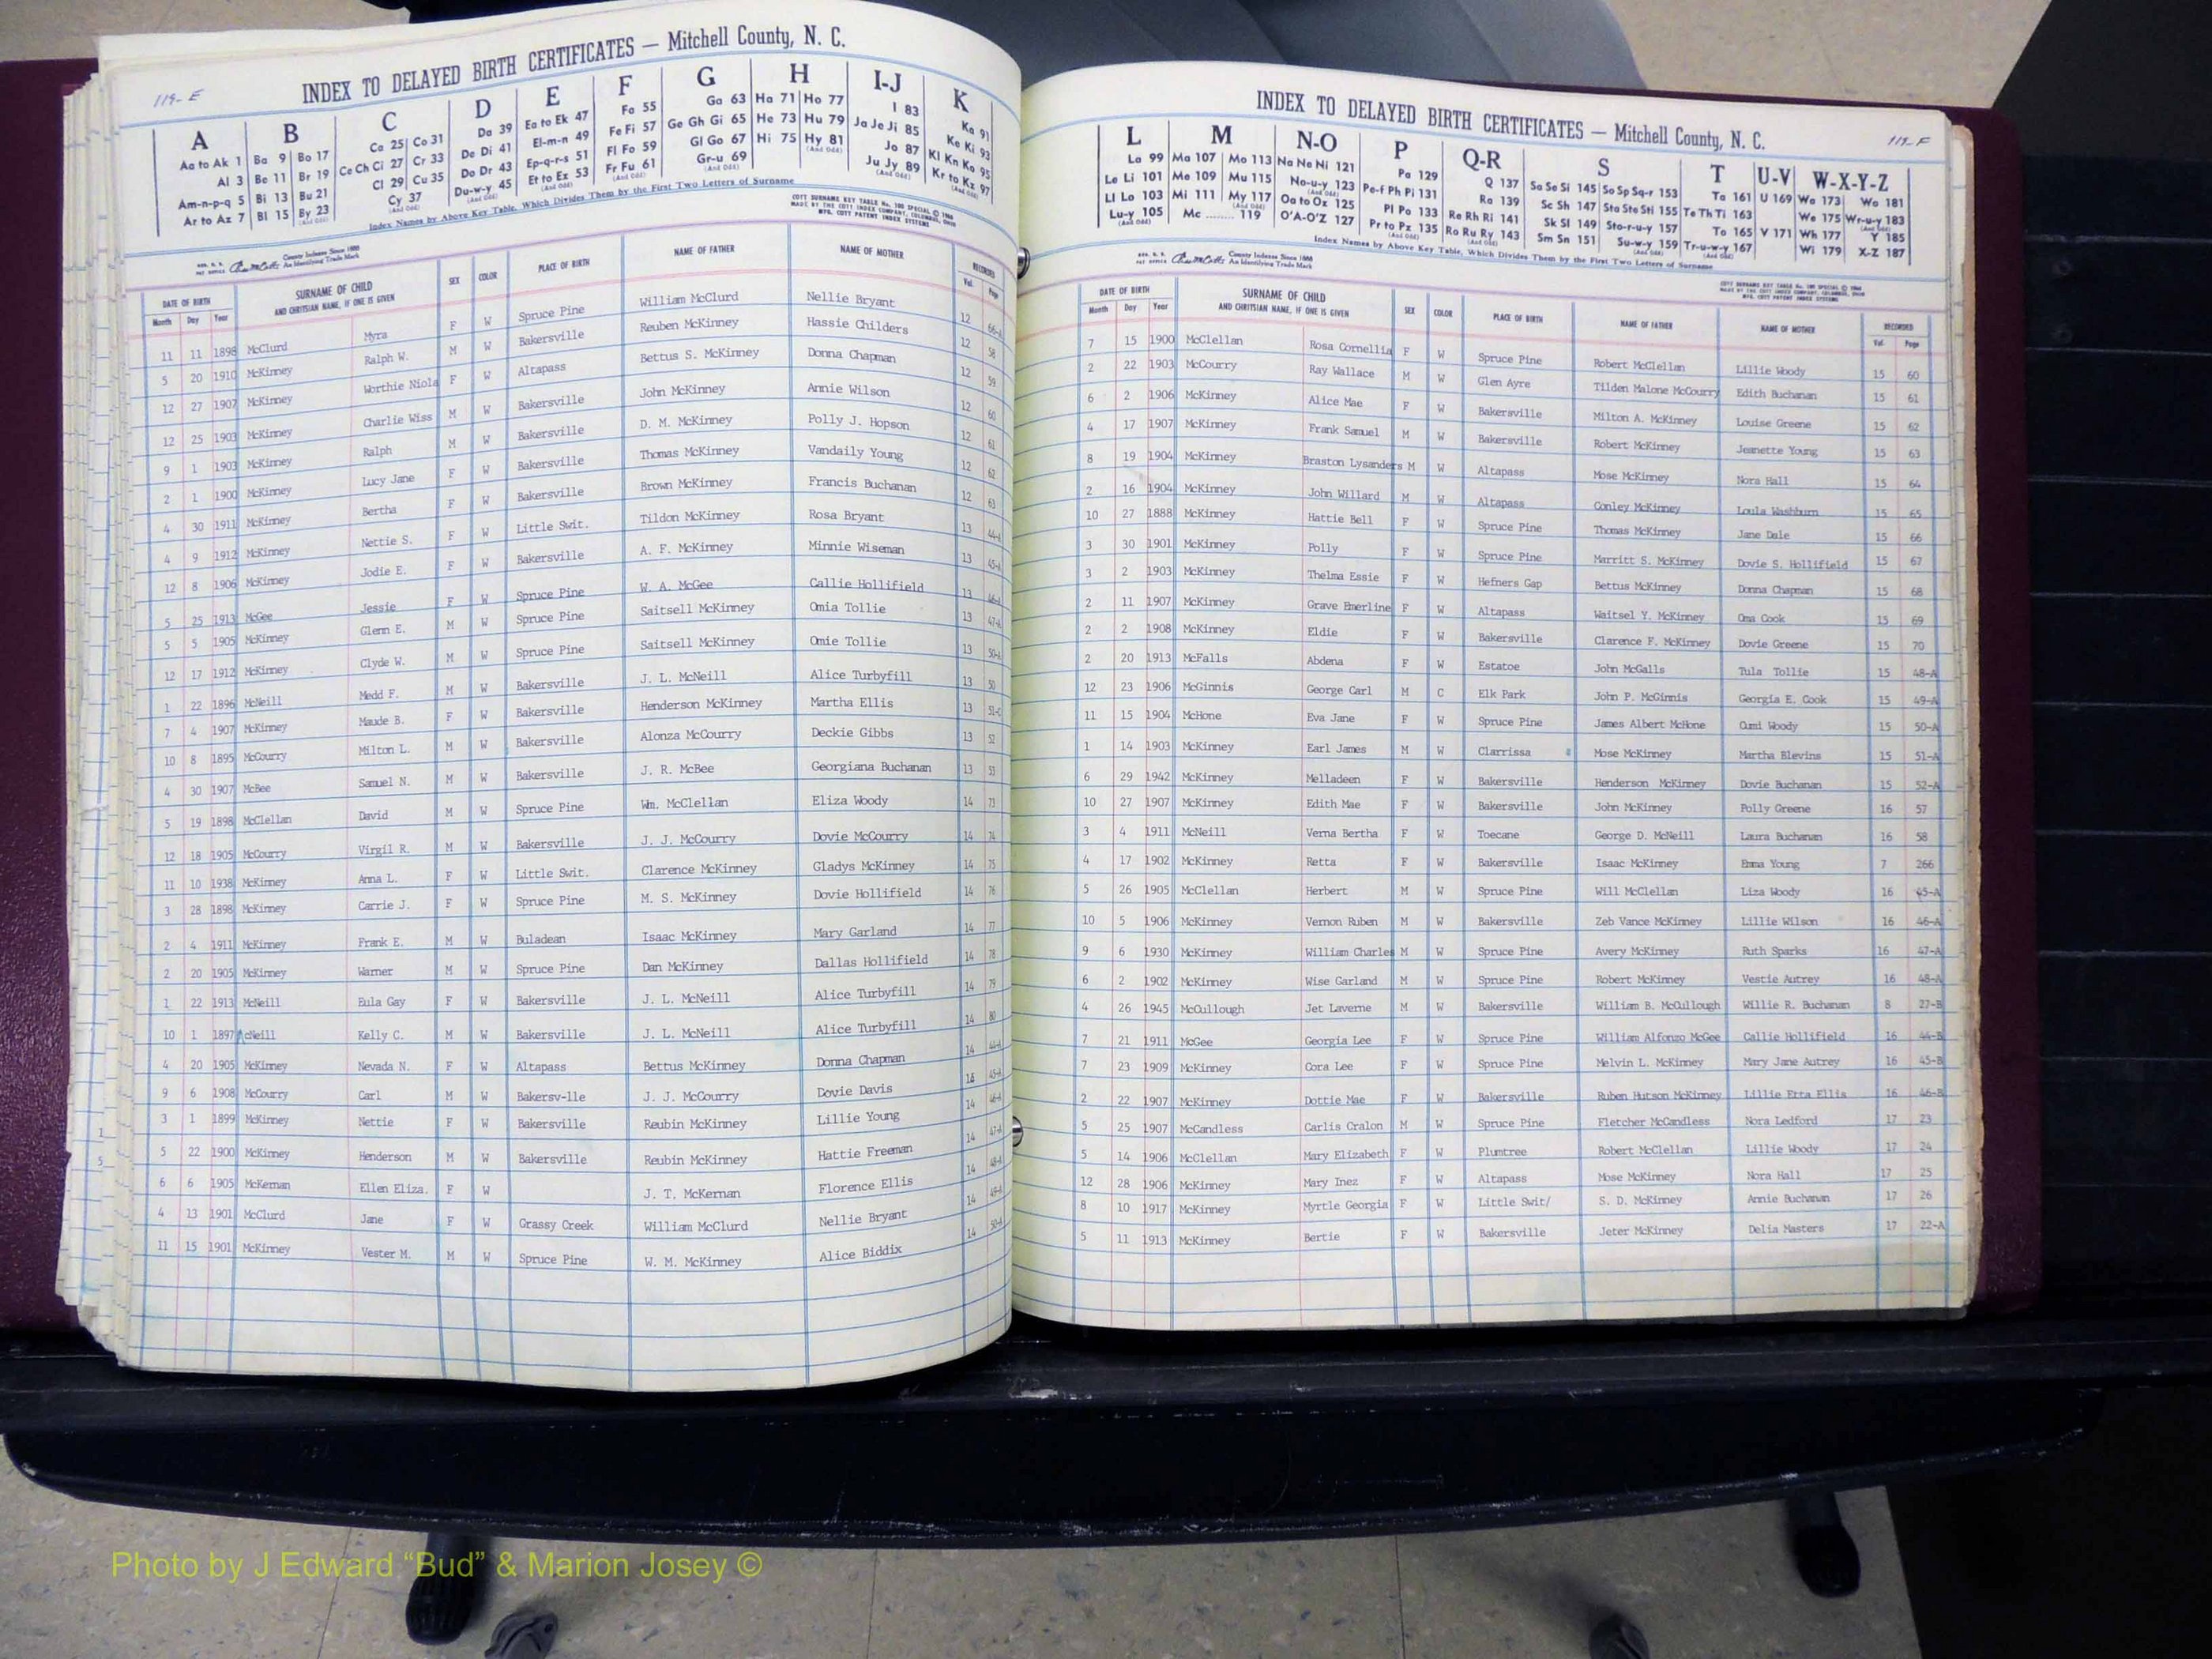 119-E
INDEX TO DELAYED BIRTH CERTIFICATES — Mitchell County, N. C.
A B C D E F G H I-J K
Aa to Ak 1 Ba 9 Bo 17 Ca 25 Co 31 Da 39 Ea to Ek 47 Fa 55 Ga 63 Ha 71 Ho 77 I 83 Ka 91
Al 3 Be 11 Br 19 Ce Ch Ci 27 Cr 33 De Di 41 El-m-n 49 Fe Fi 57 Ge Gh Gi 65 He 73 Hu 79 Ja Je Ji 85 Ke Ki 93
Am-n-p-q 5 Bi 13 Bu 21 Cl 29 Cu 35 Do Dr 43 Ep-q-r-s 51 Fl Fo 59 Gl Go 67 Hi 75 Hy 81 Jo 87 Kl Kn Ko 95
Ar to Az 7 Bl 15 By 23 Cy 37 Du-w-y 45 Et to Ex 53 Fr Fu 61 Gr-u 69 Ju Jy 89 Kr to Kz 97
Index Names by Above Key Table, Which Divides Them by the First Two Letters of Surname
COTT SURNAME KEY TABLE No. 100 SPECIAL © 1966
MADE BY THE COTT INDEX COMPANY, COLUMBUS, OHIO
MFG. COTT PATENT INDEX SYSTEMS
County Indexes Since 1888
An Identifying Trade Mark
DATE OF BIRTH SURNAME OF CHILD SEX COLOR PLACE OF BIRTH NAME OF FATHER NAME OF MOTHER RECORDED
Month Day Year AND CHRITSIAN NAME, IF ONE IS GIVEN Vol. Page
11 11 1898 McClurd Myra F W Spruce Pine William McClurd Nellie Bryant 12 66-A
5 20 1910 McKinney Ralph W. M W Bakersville Reuben McKinney Hassie Childers 12 58
12 27 1907 McKinney Worthie Niola F W Altapass Bettus S. McKinney Donna Chapman 12 59
12 25 1903 McKinney Charlie Wiss M W Bakersville John McKinney Annie Wilson 12 60
9 1 1903 McKinney Ralph M W Bakersville D. M. McKinney Polly J. Hopson 12 61
2 1 1900 McKinney Lucy Jane F W Bakersville Thomas McKinney Vandaily Young 12 62
4 30 1911 McKinney Bertha F W Bakersville Brown McKinney Francis Buchanan 12 63
4 9 1912 McKinney Nettie S. F W Little Swit. Tildon McKinney Rosa Bryant 13 44-A
12 8 1906 McKinney Jodie E. F W Bakersville A. F. McKinney Minnie Wiseman 13 45-A
5 25 1913 McGee Jessie F W Spruce Pine W. A. McGee Callie Hollifield 13 46-A
5 5 1905 McKinney Glenn E. M W Spruce Pine Saitsell McKinney Omia Tollie 13 47-A
12 17 1912 McKinney Clyde W. M W Spruce Pine Saitsell McKinney Omie Tollie 13 50-A
1 22 1896 McNeill Medd F. M W Bakersville J. L. McNeill Alice Turbyfill 13 50
7 4 1907 McKinney Maude B. F W Bakersville Henderson McKinney Martha Ellis 13 51-C
10 8 1895 McCourry Milton L. M W Bakersville Alonza McCourry Deckie Gibbs 13 52
4 30 1907 McBee Samuel N. M W Bakersville J. R. McBee Georgiana Buchanan 13 53
5 19 1898 McClellan David M W Spruce Pine Wm. McClellan Eliza Woody 14 73
12 18 1905 McCourry Virgil R. M W Bakersville J. J. McCourry Dovie McCourry 14 74
11 10 1938 McKinney Anna L. F W Little Swit. Clarence McKinney Gladys McKinney 14 75
3 28 1898 McKinney Carrie J. F W Spruce Pine M. S. McKinney Dovie Hollifield 14 76
2 4 1911 McKinney Frank E. M W Buladean Isaac McKinney Mary Garland 14 77
2 20 1905 McKinney Warner M W Spruce Pine Dan McKinney Dallas Hollifield 14 78
1 22 1913 McNeill Eula Gay F W Bakersville J. L. McNeill Alice Turbyfill 14 79
10 1 1897 McNeill Kelly C. M W Bakersville J. L. McNeill Alice Turbyfill 14 80
4 20 1905 McKinney Nevada N. F W Altapass Bettus McKinney Donna Chapman 14 44-A
9 6 1908 McCourry Carl M W Bakersv-lle J. J. McCourry Dovie Davis 14 45-A
3 1 1899 McKinney Nettie F W Bakersville Reubin McKinney Lillie Young 14 46-A
5 22 1900 McKinney Henderson M W Bakersville Reubin McKinney Hattie Freeman 14 47-A
6 6 1905 McKernan Ellen Eliza. F W J. T. McKernan Florence Ellis 14 48-A
4 13 1901 McClurd Jane F W Grassy Creek William McClurd Nellie Bryant 14 49-A
11 15 1901 McKinney Vester M. M W Spruce Pine W. M. McKinney Alice Biddix 14 50-A
119-F
INDEX TO DELAYED BIRTH CERTIFICATES — Mitchell County, N. C.
L M N-O P Q-R S T U-V W-X-Y-Z
La 99 Ma 107 Mo 113 Na Ne Ni 121 Pa 129 Q 137 Sa Se Si 145 So Sp Sq-r 153 Ta 161 U 169 Wa 173 Wo 181
Le Li 101 Me 109 Mu 115 No-u-y 123 Pe-f Ph Pi 131 Ra 139 Sc Sh 147 Sta Ste Sti 155 Te Th Ti 163 We 175 Wr-u-y 183
Ll Lo 103 Mi 111 My 117 Oa to Ox 125 Pl Po 133 Re Rh Ri 141 Sk Sl 149 Sto-r-u-y 157 To 165 V 171 Wh 177 Y 185
Lu-y 105 Mc ........ 119 O'A-O'Z 127 Pr to Pz 135 Ro Ru Ry 143 Sm Sn 151 Su-w-y 159 Tr-u-w-y 167 Wi 179 X-Z 187
Index Names by Above Key Table, Which Divides Them by the First Two Letters of Surname
COTT SURNAME KEY TABLE No. 100 SPECIAL © 1966
MADE BY THE COTT INDEX COMPANY, COLUMBUS, OHIO
MFG. COTT PATENT INDEX SYSTEMS
County Indexes Since 1888
An Identifying Trade Mark
DATE OF BIRTH SURNAME OF CHILD SEX COLOR PLACE OF BIRTH NAME OF FATHER NAME OF MOTHER RECORDED
Month Day Year AND CHRITSIAN NAME, IF ONE IS GIVEN Vol. Page
7 15 1900 McClellan Rosa Cornellia F W Spruce Pine Robert McClellan Lillie Woody 15 60
2 22 1903 McCourry Ray Wallace M W Glen Ayre Tilden Malone McCourry Edith Buchanan 15 61
6 2 1906 McKinney Alice Mae F W Bakersville Milton A. McKinney Louise Greene 15 62
4 17 1907 McKinney Frank Samuel M W Bakersville Robert McKinney Jeanette Young 15 63
8 19 1904 McKinney Braston Lysanders M W Altapass Mose McKinney Nora Hall 15 64
2 16 1904 McKinney John Willard M W Altapass Conley McKinney Loula Washburn 15 65
10 27 1888 McKinney Hattie Bell F W Spruce Pine Thomas McKinney Jane Dale 15 66
3 30 1901 McKinney Polly F W Spruce Pine Marritt S. McKinney Dovie S. Hollifield 15 67
3 2 1903 McKinney Thelma Essie F W Hefners Gap Bettus McKinney Donna Chapman 15 68
2 11 1907 McKinney Grave Emerline F W Altapass Waitsel Y. McKinney Oma Cook 15 69
2 2 1908 McKinney Eldie F W Bakersville Clarence F. McKinney Dovie Greene 15 70
2 20 1913 McFalls Abdena F W Estatoe John McGalls Tula Tollie 15 48-A
12 23 1906 McGinnis George Carl M C Elk Park John P. McGinnis Georgia E. Cook 15 49-A
11 15 1904 McHone Eva Jane F W Spruce Pine James Albert McHone Cumi Woody 15 50-A
1 14 1903 McKinney Earl James M W Clarrissa Mose McKinney Martha Blevins 15 51-A
6 29 1942 McKinney Melladeen F W Bakersville Henderson McKinney Dovie Buchanan 15 52-A
10 27 1907 McKinney Edith Mae F W Bakersville John McKinney Polly Greene 16 57
3 4 1911 McNeill Verna Bertha F W Toecane George D. McNeill Laura Buchanan 16 58
4 17 1902 McKinney Retta F W Bakersville Isaac McKinney Emma Young 7 266
5 26 1905 McClellan Herbert M W Spruce Pine Will McClellan Liza Woody 16 45-A
10 5 1906 McKinney Vernon Ruben M W Bakersville Zeb Vance McKinney Lillie Wilson 16 46-A
9 6 1930 McKinney William Charles M W Spruce Pine Avery McKinney Ruth Sparks 16 47-A
6 2 1902 McKinney Wise Garland M W Spruce Pine Robert McKinney Vestie Autrey 16 48-A
4 26 1945 McCullough Jet Laverne M W Bakersville William B. McCullough Willie R. Buchanan 8 27-B
7 21 1911 McGee Georgia Lee F W Spruce Pine William Alfonzo McGee Callie Hollifield 16 44-B
7 23 1909 McKinney Cora Lee F W Spruce Pine Melvin L. McKinney Mary Jane Autrey 16 45-B
2 22 1907 McKinney Dottie Mae F W Bakersville Ruben Hutson McKinney Lillie Etta Ellis 16 46-B
5 25 1907 McCandless Carlis Cralon M W Spruce Pine Fletcher McCandless Nora Ledford 17 23
5 14 1906 McClellan Mary Elizabeth F W Plumtree Robert McClellan Lillie Woody 17 24
12 28 1906 McKinney Mary Inez F W Altapass Mose McKinney Nora Hall 17 25
8 10 1917 McKinney Myrtle Georgia F W Little Swit/ S. D. McKinney Annie Buchanan 17 26
5 11 1913 McKinney Bertie F W Bakersville Jeter McKinney Delia Masters 17 22-A
Photo by J Edward “Bud” & Marion Josey ©